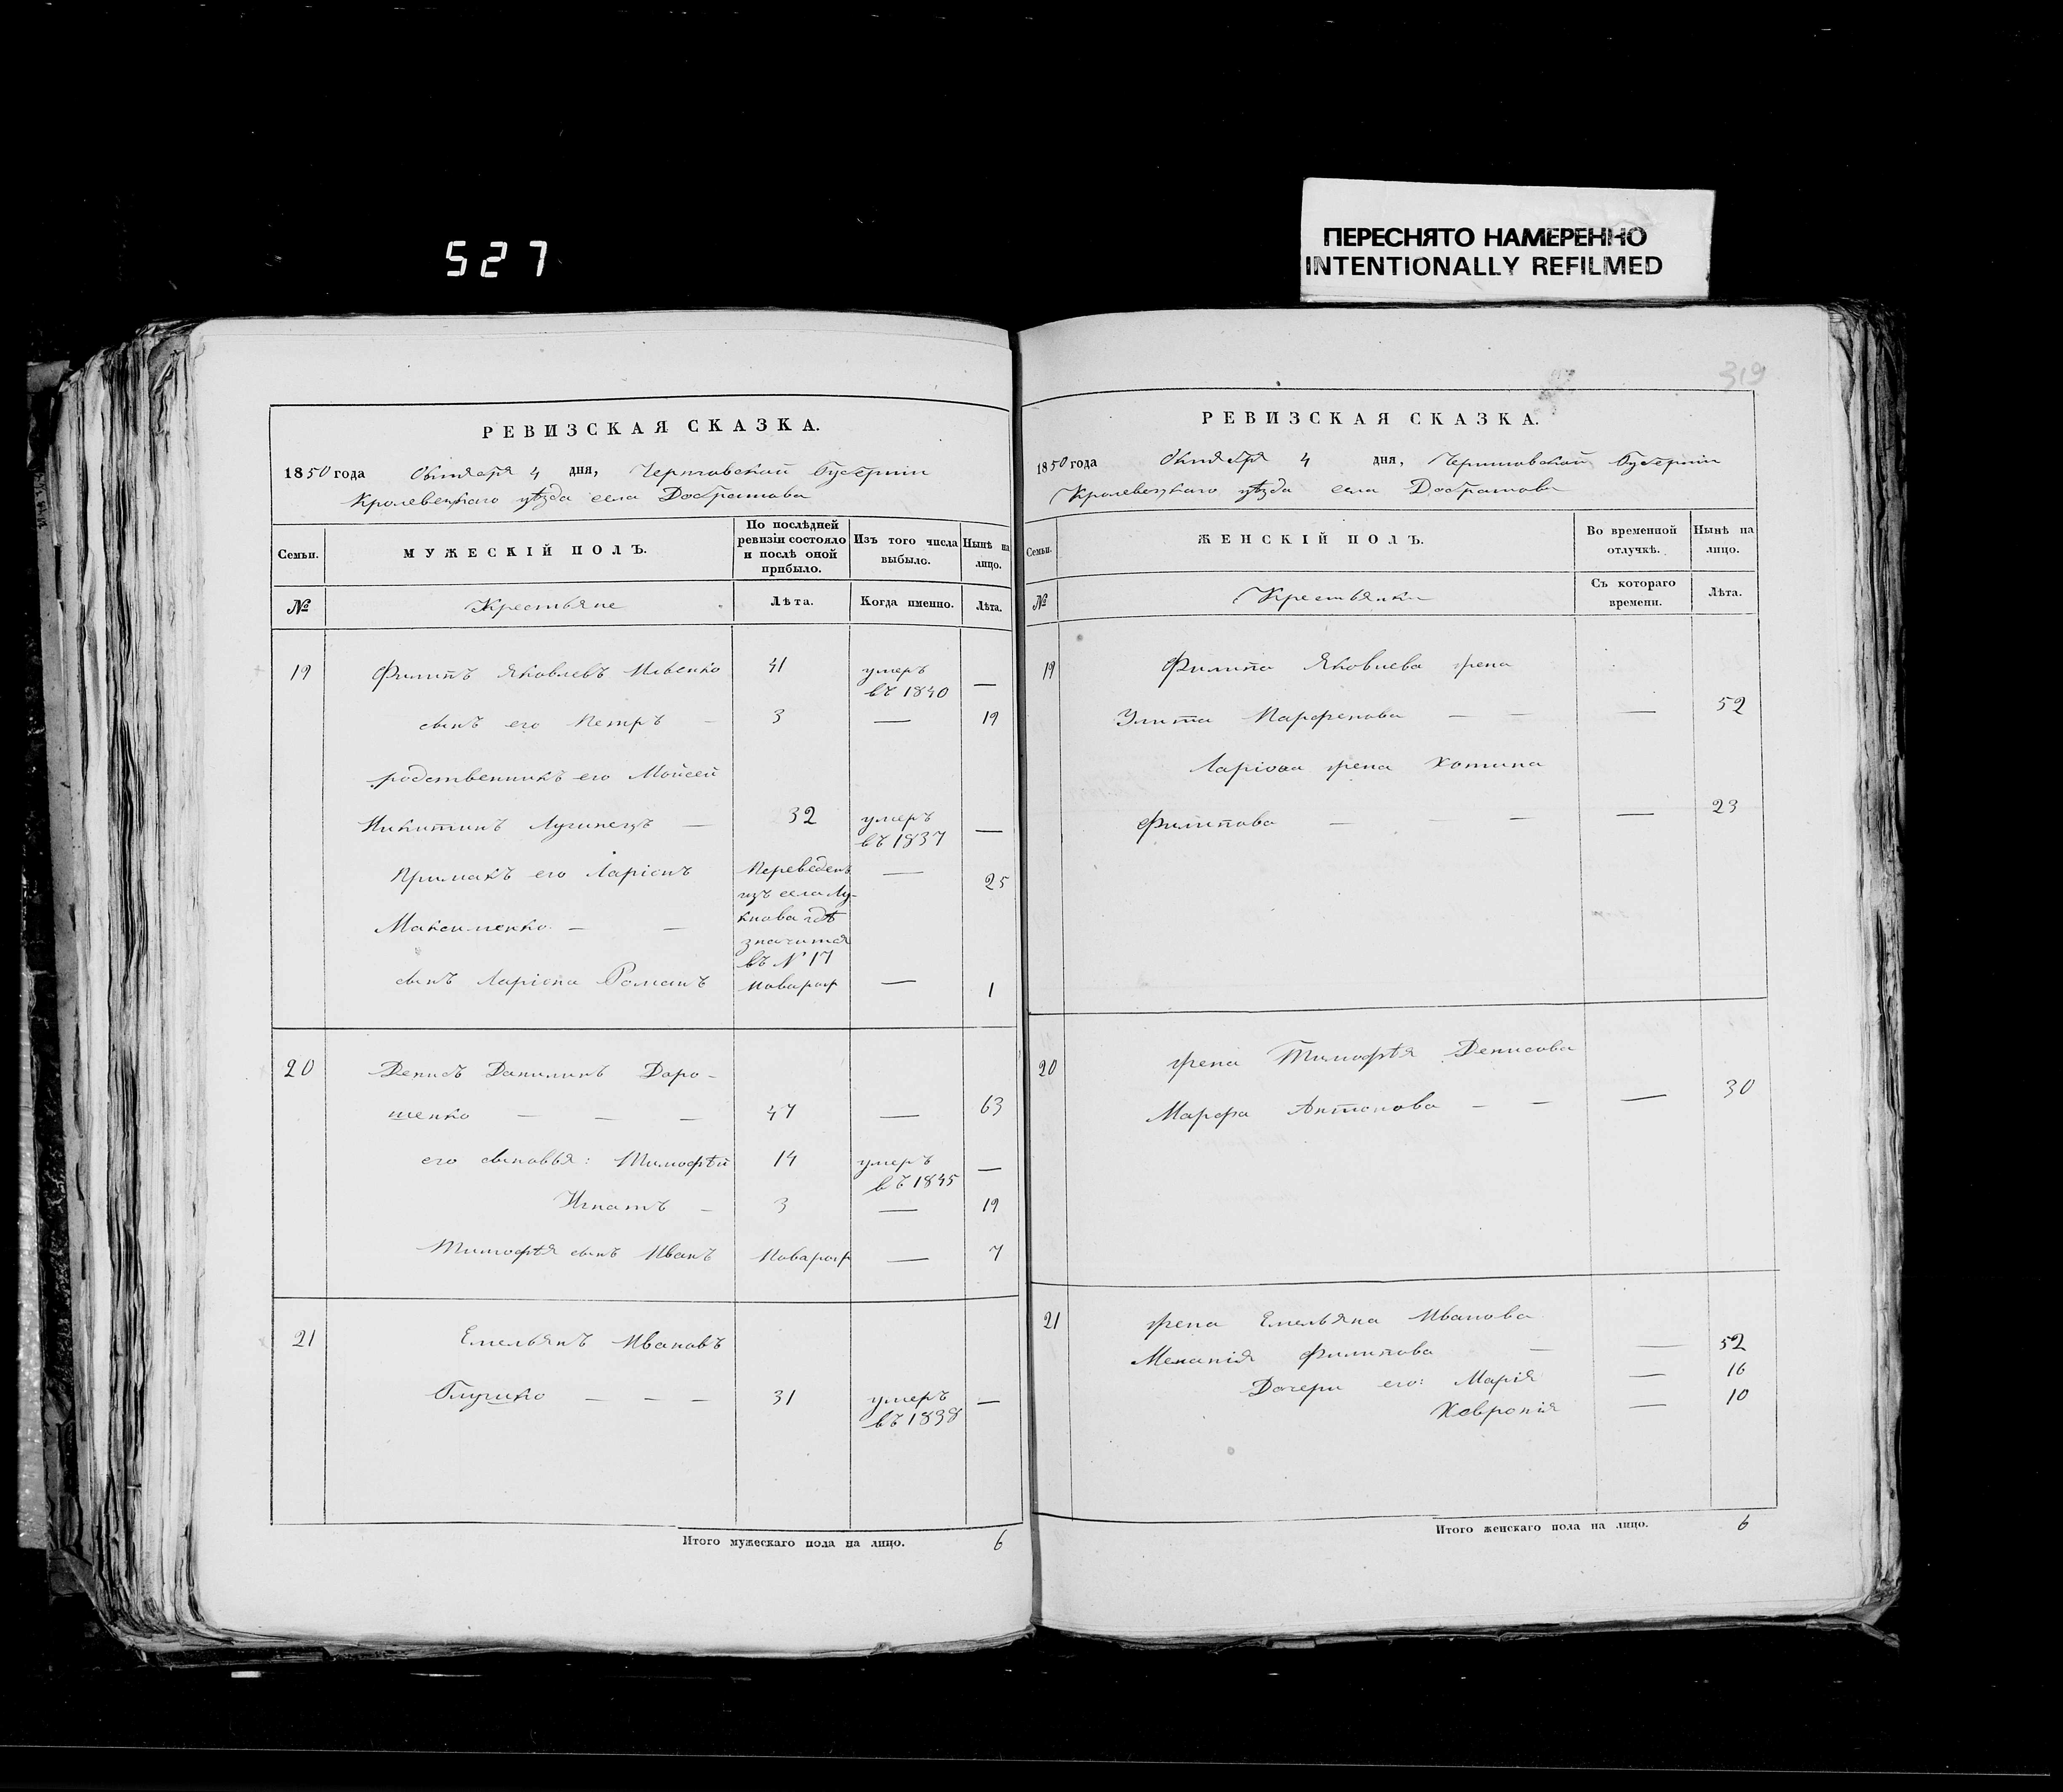 527
ПЕРЕСНЯТО НАМЕРЕННО
INTENTIONALLY REFILMED
РЕВИЗСКАЯ СКАЗКА.
1850 года Октября 4 дня, Черниговской Губерніи
Кролевецкаго уѣзда села Добратова
Семьи.
МУЖЕСКІЙ ПОЛЪ.
По послѣдней ревизіи состояло и послѣ оной прибыло.
Изъ того числа выбыло.
Нынѣ на лицо.
№
Крестьяне
Лѣта.
Когда именно.
Лѣта.
19 Филипъ Яковлевъ Ивенко 41 умеръ въ 1840 —
сынъ его Петръ — 3 — 19
родственникъ его Мойсей
Никитинъ Лугинецъ — 32 умеръ въ 1837 —
Примакъ его Ларіонъ Переведенъ — 25
изъ села Лу-
кнова гдѣ
Максименко — —
значится
въ № 17
сынъ Ларіона Романъ Новарож — 1
20 Денисъ Данилинъ Доро-
шенко — — — 47 — 63
его сыновья: Тимофѣй 14 умеръ въ 1845 —
Игнатъ — 3 — 19
Тимофѣя сынъ Иванъ Новарож — 7
21 Емельянъ Ивановъ
Глушко — — — 31 умеръ въ 1838 —
Итого мужескаго пола на лицо. 6
319
РЕВИЗСКАЯ СКАЗКА.
1850 года Октября 4 дня, Черниговской Губерніи
Кролевецкаго уѣзда села Добратова
Семьи.
ЖЕНСКІЙ ПОЛЪ.
Во временной отлучкѣ.
Нынѣ на лицо.
№
Крестьянки
Съ котораго времени.
Лѣта.
19 Филипа Яковлева жена
Улита Парфенова — — — 52
Ларіона жена Хотина
Филипова — — — — 23
20 жена Тимофѣя Денисова
Марфа Антонова — — — 30
21 жена Емельяна Иванова
Меланія Филипова — — 52
Дочери его: Марія — 16
Хевронія — 10
Итого женскаго пола на лицо. 6